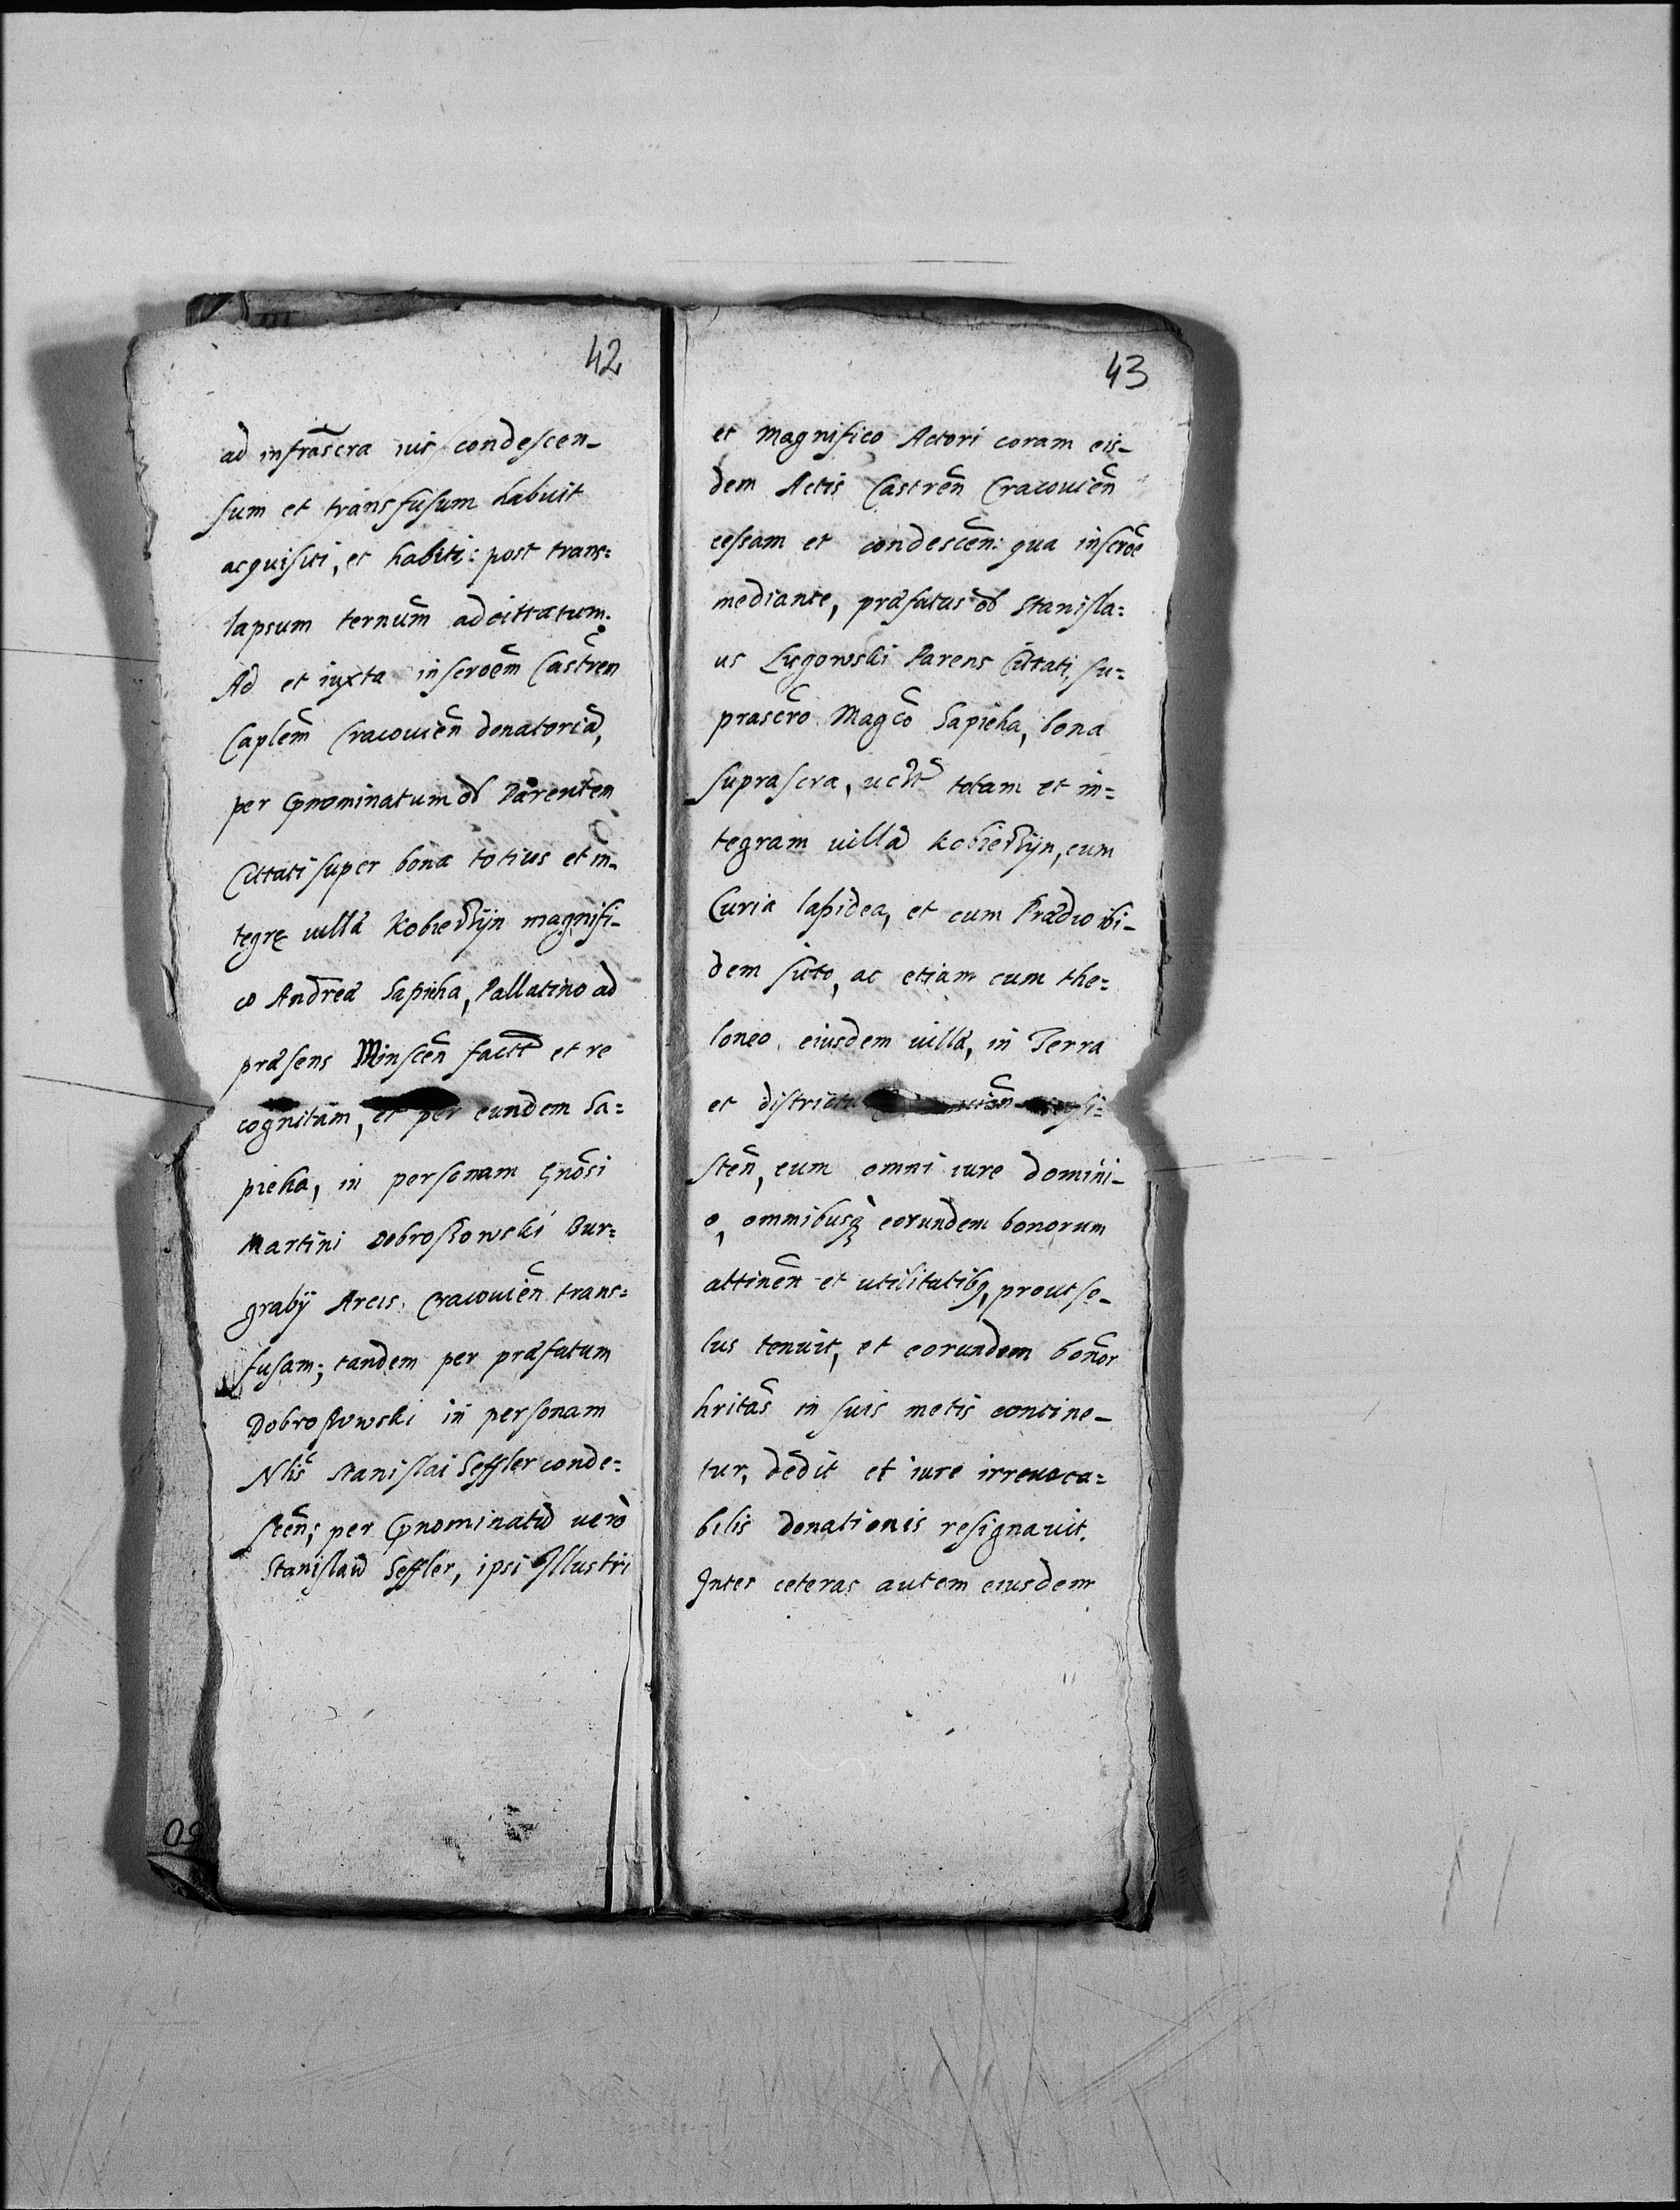 42
ad infrascra ius condescen-
sum et transfusum habuit
acquisiti, et habiti: post trans=
lapsum ternum adcittatum.
Ad et iuxta inscroem Castren
Caplem Cracouien donatoria,
per Gnominatum od Parentem
Cittati super bona totius et in-
tegrę uilla Kobierzyn magnifi-
co Andrea Sapieha, Pallatino ad
præsens Minscen fact et re
cognitam, et per eundem Sa=
pieha, in personam Gnosi
Martini Dobroszowski Bur=
grabij Arcis Cracouien trans=
fusam; tandem per præfatum
Dobroszowski in personam
Nlis Stanislai Seffler conde=
scen; per Gnominatu uero
Stanislaw Seffler, ipsi Illustri
43
et Magnifico Actori coram eis-
dem Actis Castren Cracouien
cessam et condescen: qua inscroe
mediante, præfatus od Stanisla=
us Ługowski Parens Cittati, su=
prascro Magco Sapieha, bona
suprascra, uidt totam et in=
tegram uilla Kobierzyn, cum
Curia lapidea, et cum Prædio ibi-
dem sito, ac etiam cum the=
loneo eiusdem uilla, in Terra
et districtu
sten, cum omni iure domini-
o, omnibusq eorundem bonorum
attinen et utilitatibq, prout so-
lus tenuit, et eorundem bonor
hritas in suis metis contine-
tur, dedit et iure irreuoca=
bilis donationis resignauit.
Inter ceteras autem eiusdem